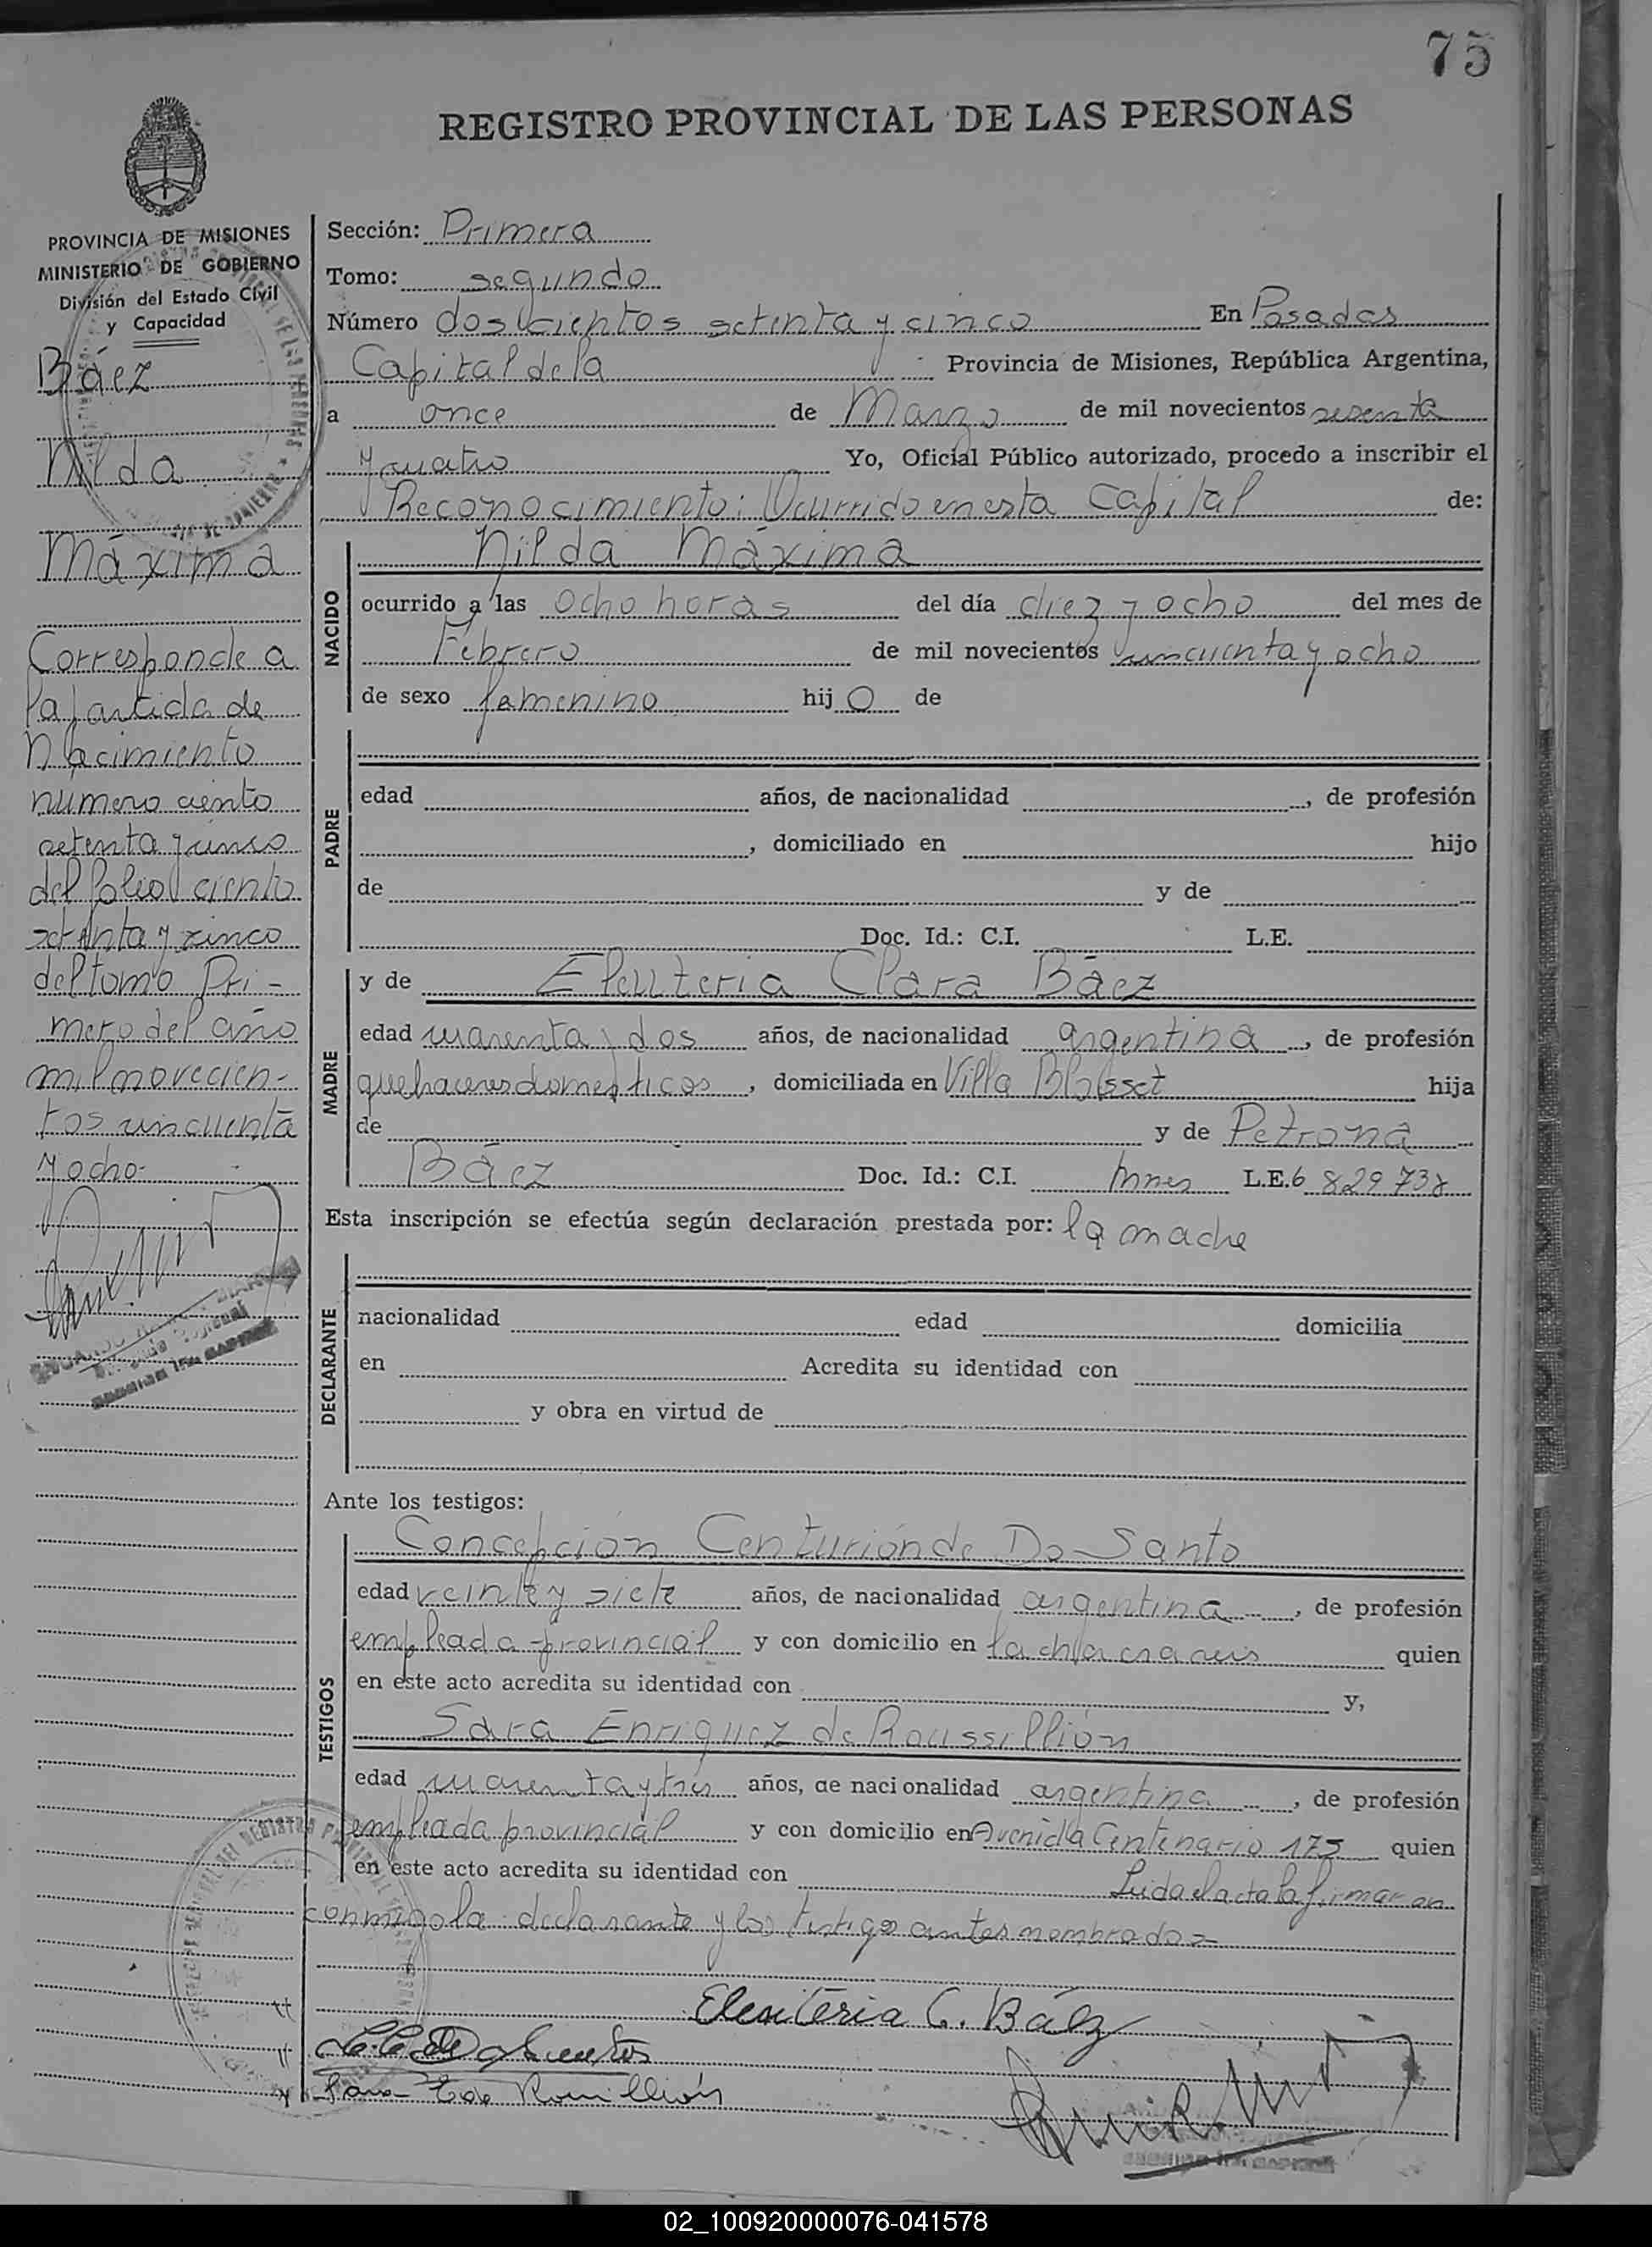 75
REGISTRO PROVINCIAL DE LAS PERSONAS
PROVINCIA DE MISIONES
MINISTERIO DE GOBIERNO
División del Estado Civil
y Capacidad
Báez
Nilda
Máxima
Corresponde a
la partida de
Nacimiento
numero ciento
setenta y cinco
del folio ciento
setenta y cinco
del tomo Pri-
mero del año
mil novecien-
tos cincuenta
y ocho-
Sección: Primera
Tomo: segundo
Número doscientos setenta y cinco En Posadas
Capital de la Provincia de Misiones, República Argentina,
a once de Marzo de mil novecientos sesenta
y cuatro Yo, Oficial Público autorizado, procedo a inscribir el
Reconocimiento: Ocurrido en esta Capital de:
NACIDO
Nilda Máxima
ocurrido a las ocho horas del día diez y ocho del mes de
Febrero de mil novecientos cincuenta y ocho
de sexo femenino hij o de
PADRE
edad años, de nacionalidad , de profesión
, domiciliado en hijo
de y de
Doc. Id.: C.I. L.E.
MADRE
y de Eleuteria Clara Báez
edad cuarenta y dos años, de nacionalidad argentina, de profesión
quehaceres domesticos, domiciliada en Villa Blosset hija
de y de Petrona
Báez Doc. Id.: C.I. Mnes L.E. 6 829 738
Esta inscripción se efectúa según declaración prestada por: la madre
DECLARANTE
nacionalidad edad domicilia
en Acredita su identidad con
y obra en virtud de
Ante los testigos:
TESTIGOS
Concepción Centurión de Do Santo
edad veinte y siete años, de nacionalidad argentina, de profesión
empleada provincial y con domicilio en quien
en este acto acredita su identidad con y,
Sara Enriquez de Roussillión
edad cuarenta y tres años, de nacionalidad argentina, de profesión
empleada provincial y con domicilio en Avenida Centenario 175 quien
en este acto acredita su identidad con Leida el acta la firmaron
conmigo la declarante y los testigos antes nombrados=
Eleuteria C. Báez
02_100920000076-041578